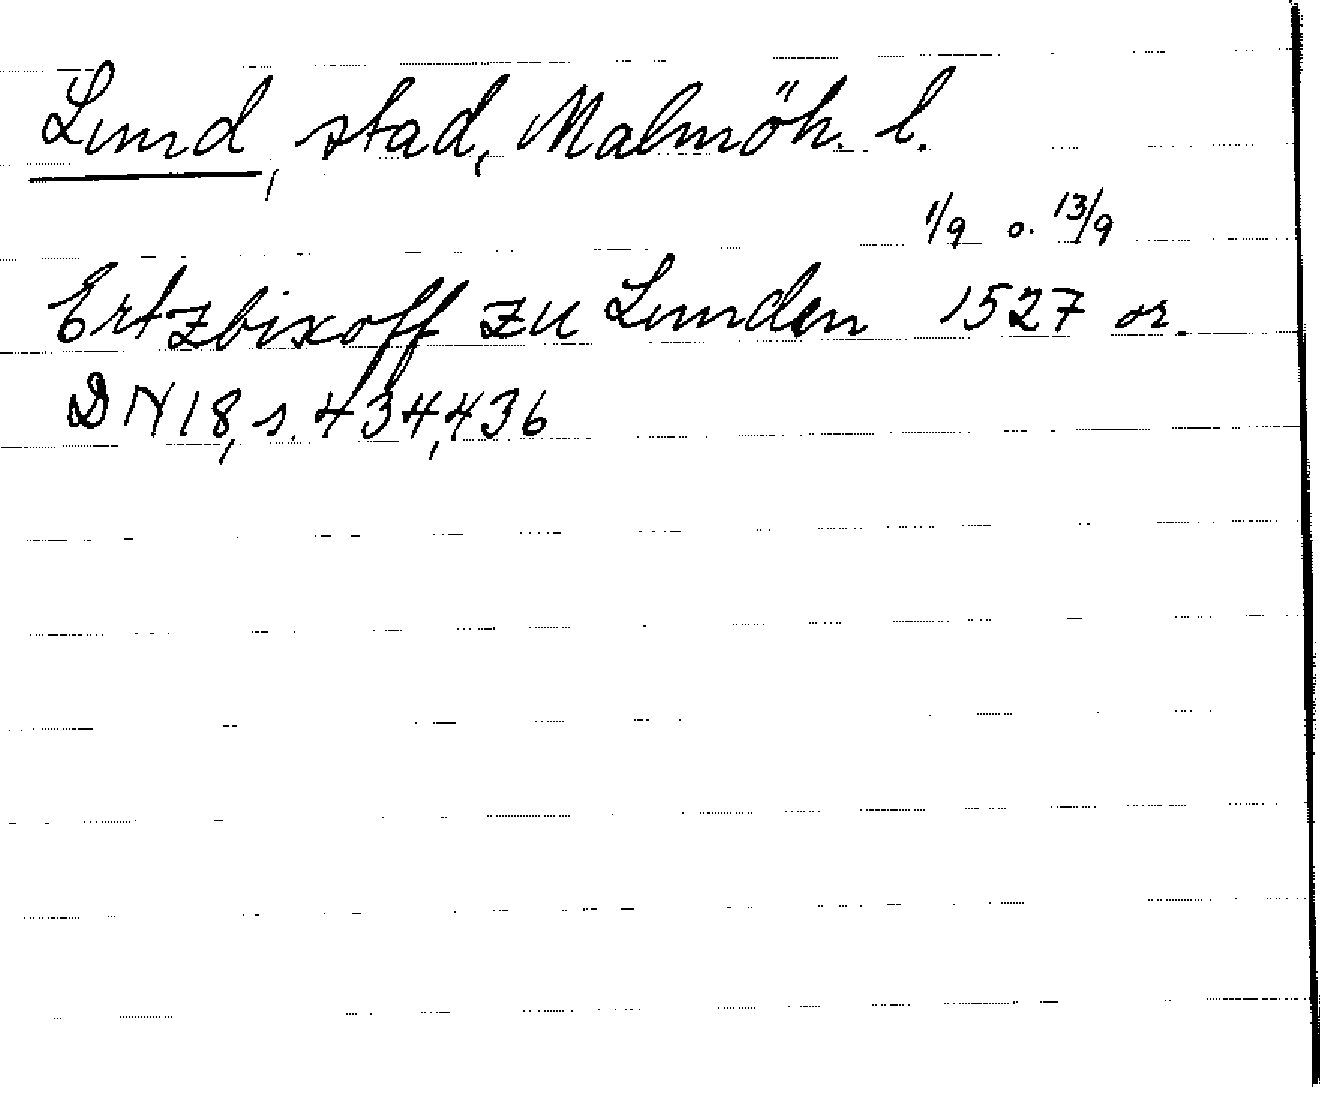 Lund, stad, Malmöh. l.
1/9 o. 13/9
Ertzbixoff zu Lunden 1527 or.
DN 18, s. 434, 436